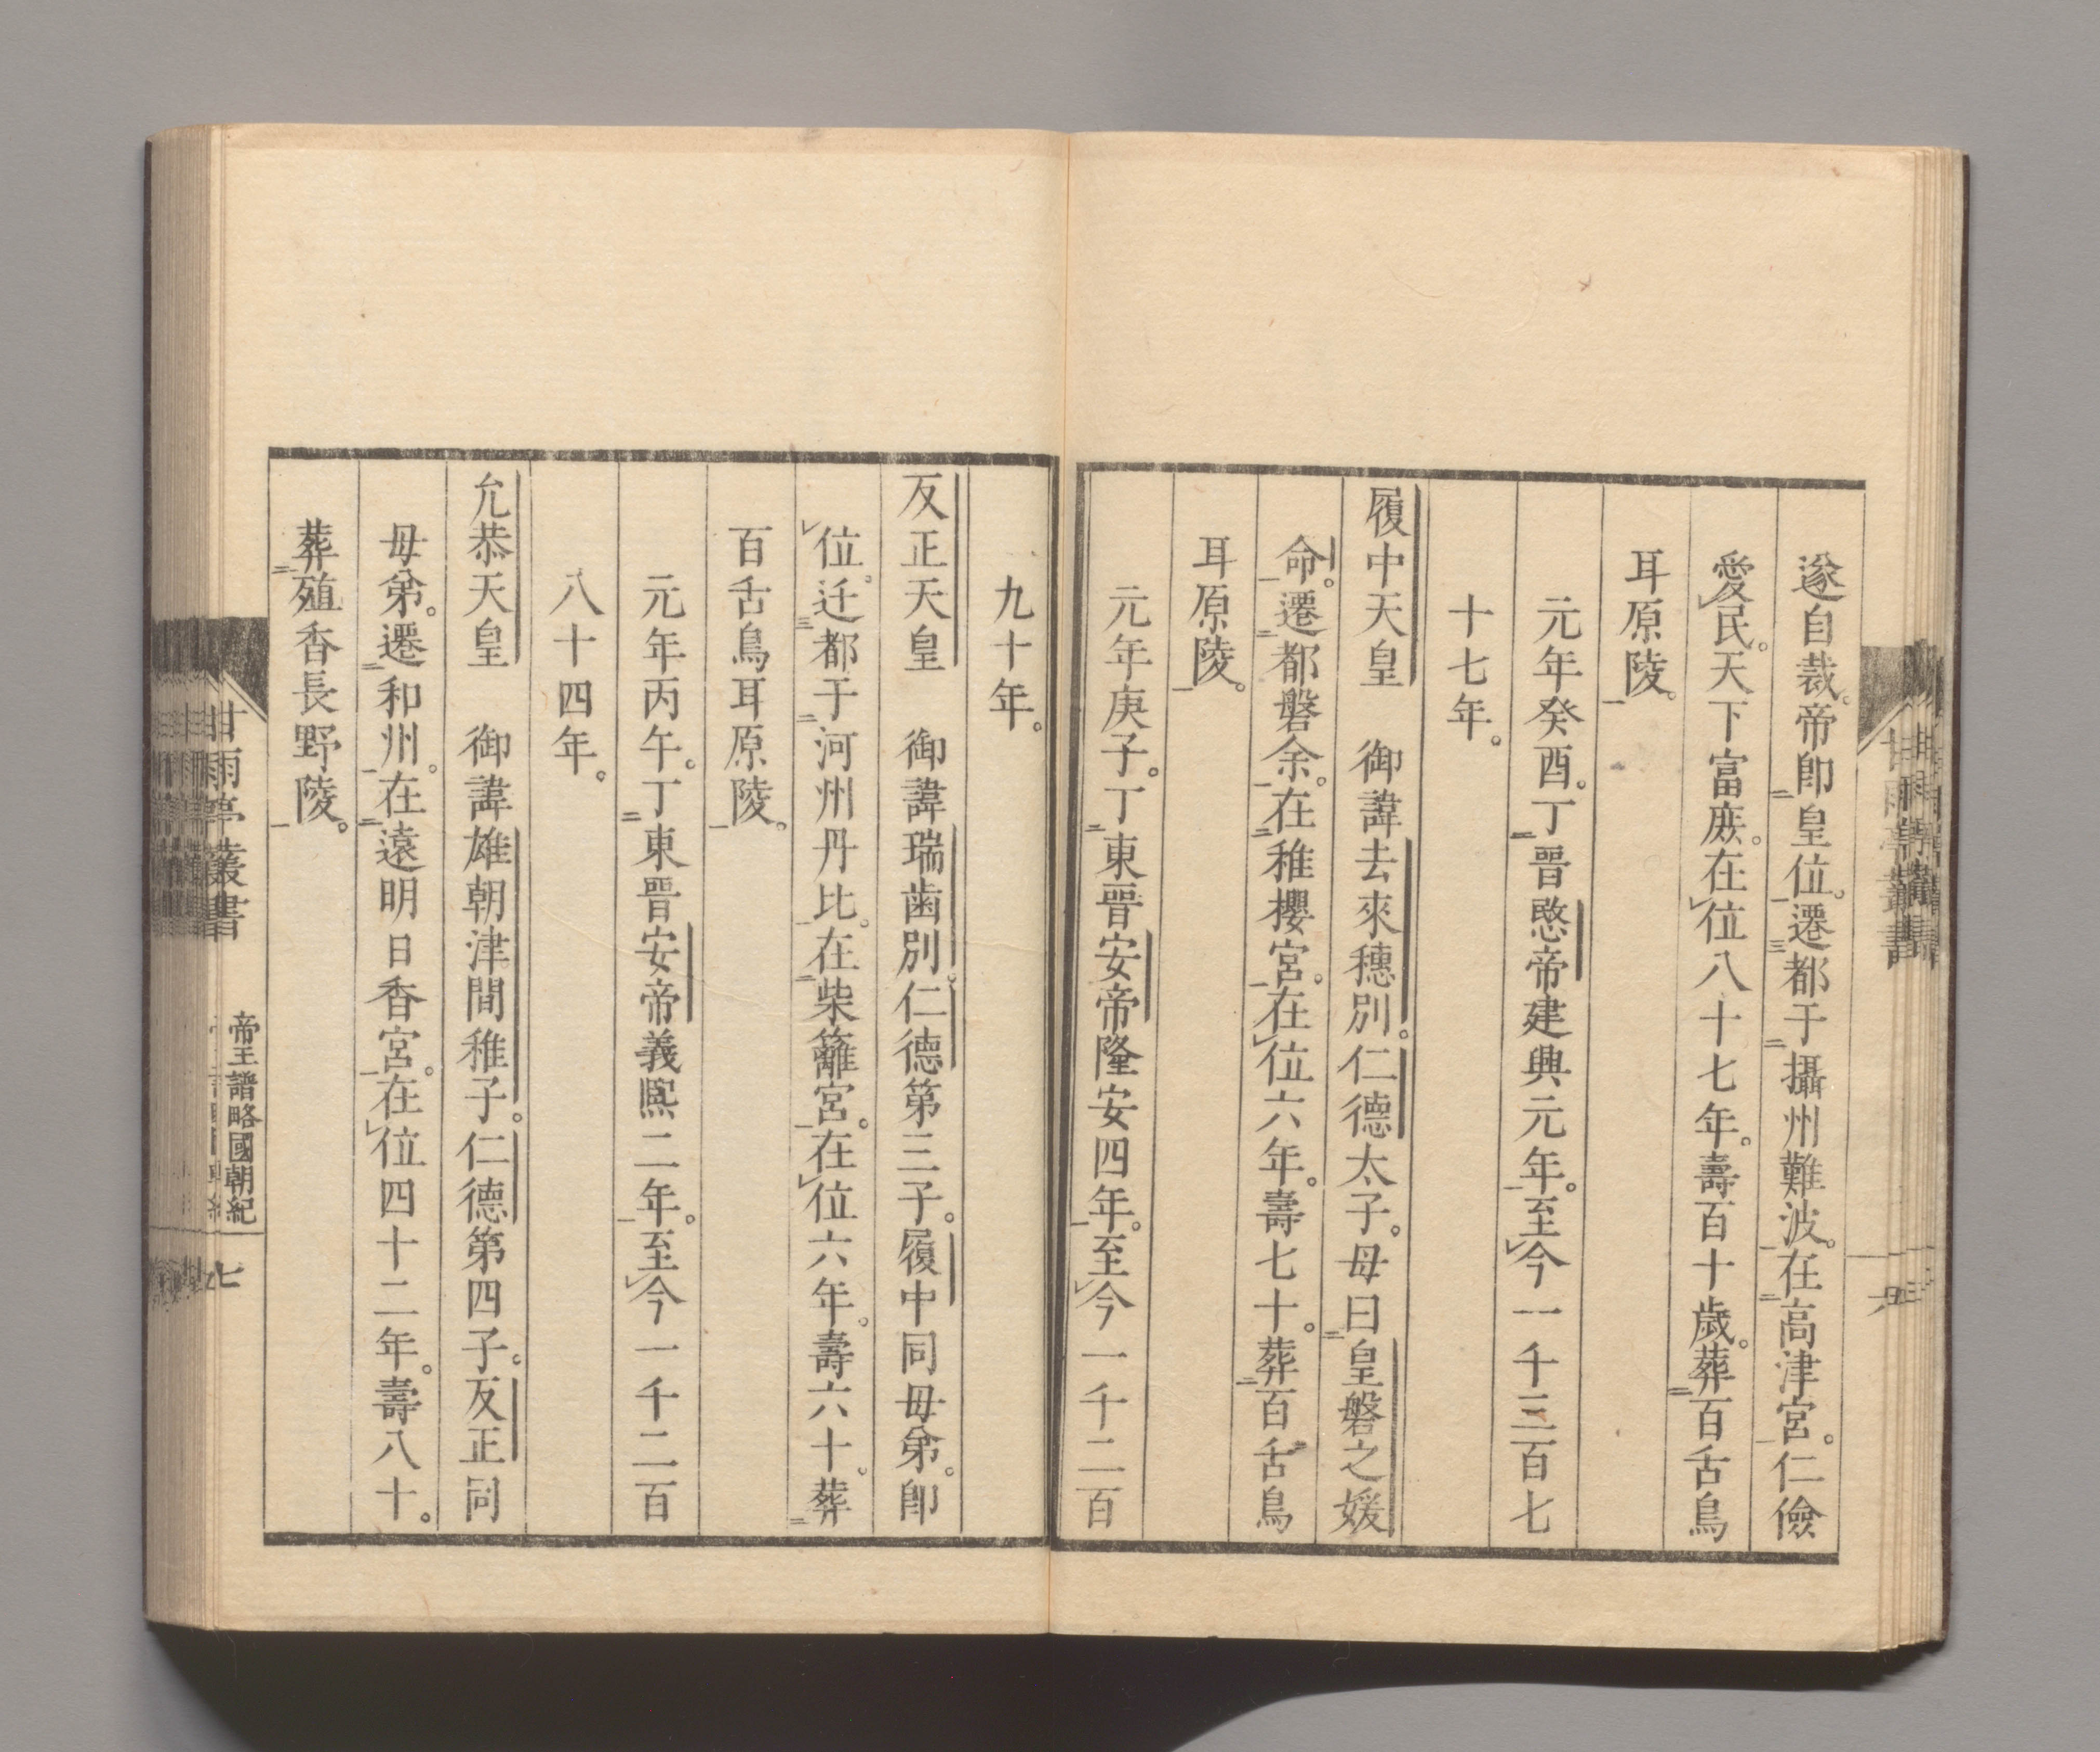 遂自裁。帝卽皇位。遷都于攝州難波。在高津宮。仁儉
愛民。天下富庶。在位八十七年。壽百十歲。葬百舌鳥
耳原陵。
元年癸酉。丁晉愍帝建興元年。至今一千三百七
十七年。
履中天皇　御諱去來穗別。仁德太子。母曰皇磐之媛
命。遷都磐余。在稚櫻宮。在位六年。壽七十。葬百舌鳥
耳原陵。
元年庚子。丁東晉安帝隆安四年。至今一千二百
九十年。
反正天皇　御諱瑞歯別。仁德第三子。履中同母弟。卽
位。迁都于河州丹比。在柴籬宮。在位六年。壽六十。葬
百舌鳥耳原陵。
元年丙午。丁東晉安帝義熙二年。至今一千二百
八十四年。
允恭天皇　御諱雄朝津間稚子。仁德第四子。反正同
母弟。遷和州。在遠明日香宮。在位四十二年。壽八十。
葬殖香長野陵。
甘雨亭叢書
帝王譜略國朝紀
七